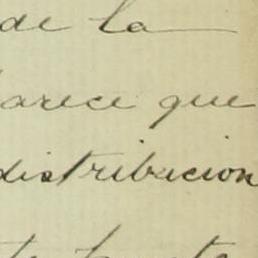 de la
parece que
distribucion